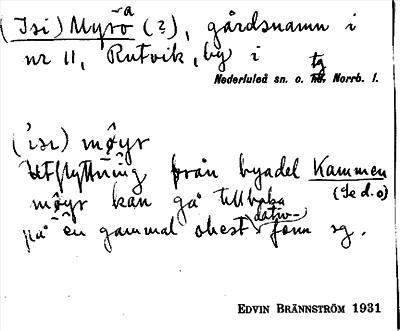 (Isi) Myrö -a (?), gårdsnamn i
nr 11, Rutvik, by i
Nederluleå sn. o. tg Norrb. l.
('isi) møyr
Utflyttning från byadel Kammen
møyr kan gå tillbaka (Se d.o)
på en gammal obest dativ-
form sg.
EDVIN BRÄNNSTRÖM 1931